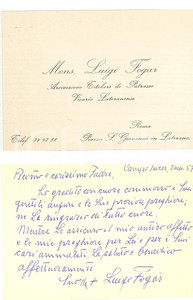 Mons. Luigi Fogar
Arcivescovo Titolare di Patrasso
Vicario Lateranense
Roma
Telef. 74.97.88
Piazza S. Giovanni in Laterano,
Rev.mo e carissimo Padre,
Ho gradito con cuore commosso i Suoi
gentili auguri e le Sue preziose preghiere,
ne La ringrazio di tutto cuore.
Mentre Le assicuro il mio antico affetto
e le mie preghiere per Lei e per i Suoi
cari ammalati, La saluto e benedico
affettuosamente
+ Luigi Fogar